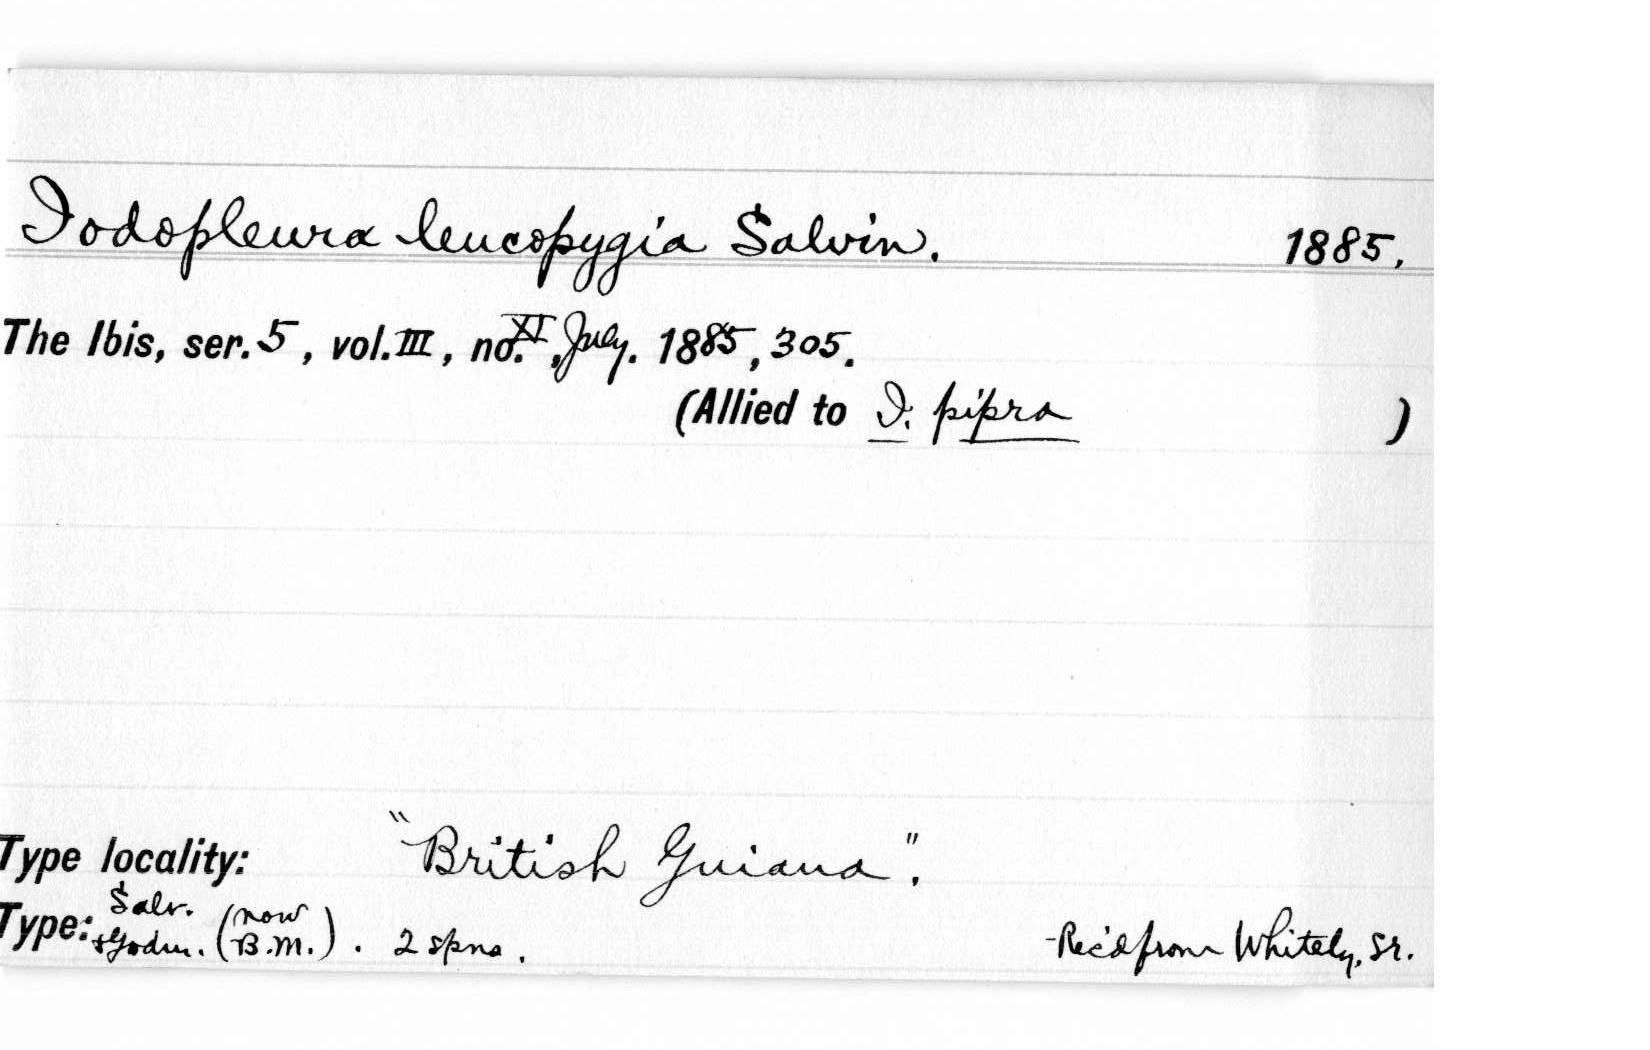 Iodopleura leucopygia Salvin. 1885.
The Ibis, ser. 5, vol. III, no. XI, July. 1885, 305.
(Allied to I. pipra )
Type locality: "British Guiana".
Type: Salv. & Godm. (now B.M.). 2 spns. Rec'd from Whitely, Sr.